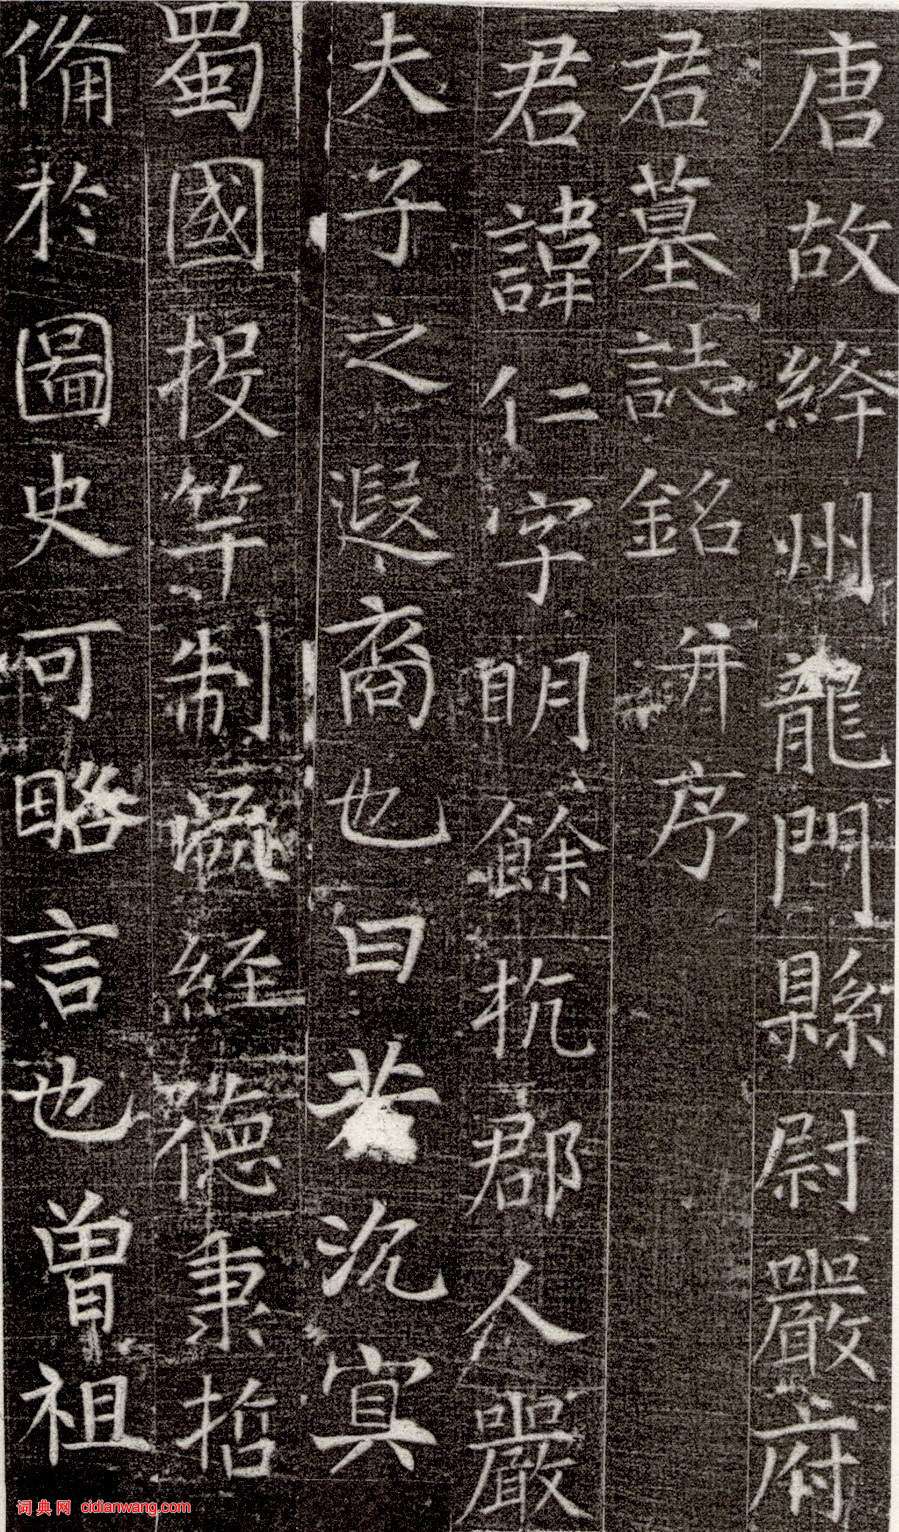 唐故絳州龍門縣尉嚴府
君墓誌銘并序
君諱仁字明餘杭郡人嚴
夫子之遐裔也曰若沉冥
蜀國投竿制經德秉哲
備於圖史可略言也曾祖
词典网 cidianwang.com